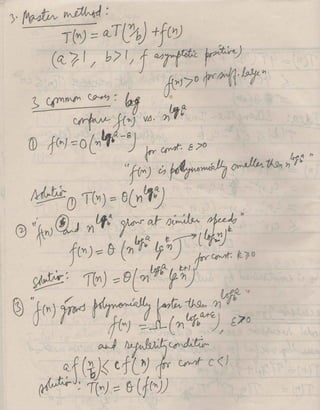 3. Master method:
T(n) = aT(n/b) + f(n)
(a ≥ 1, b > 1, f asymptotic positive)
f(n) > 0 for suff. large n
3 common cases: log
compare f(n) vs. n^(log_b a)
① f(n) = O(n^(log_b a - ε))
for const. ε > 0
"f(n) is polynomially smaller than n^(log_b a)"
solution ① T(n) = Θ(n^(log_b a))
② "f(n) and n^(log_b a) grow at similar speeds"
f(n) = Θ(n^(log_b a) lg^k n) → (log_2 n)^k
for const. k ≥ 0
Solution: T(n) = Θ(n^(log_b a) lg^(k+1) n)
③ "f(n) grows polynomially faster than n^(log_b a)"
f(n) = Ω(n^(log_b a + ε)), ε > 0
and regularity condition
a f(n/b) ≤ c f(n) for const c < 1
solution: T(n) = Θ(f(n))